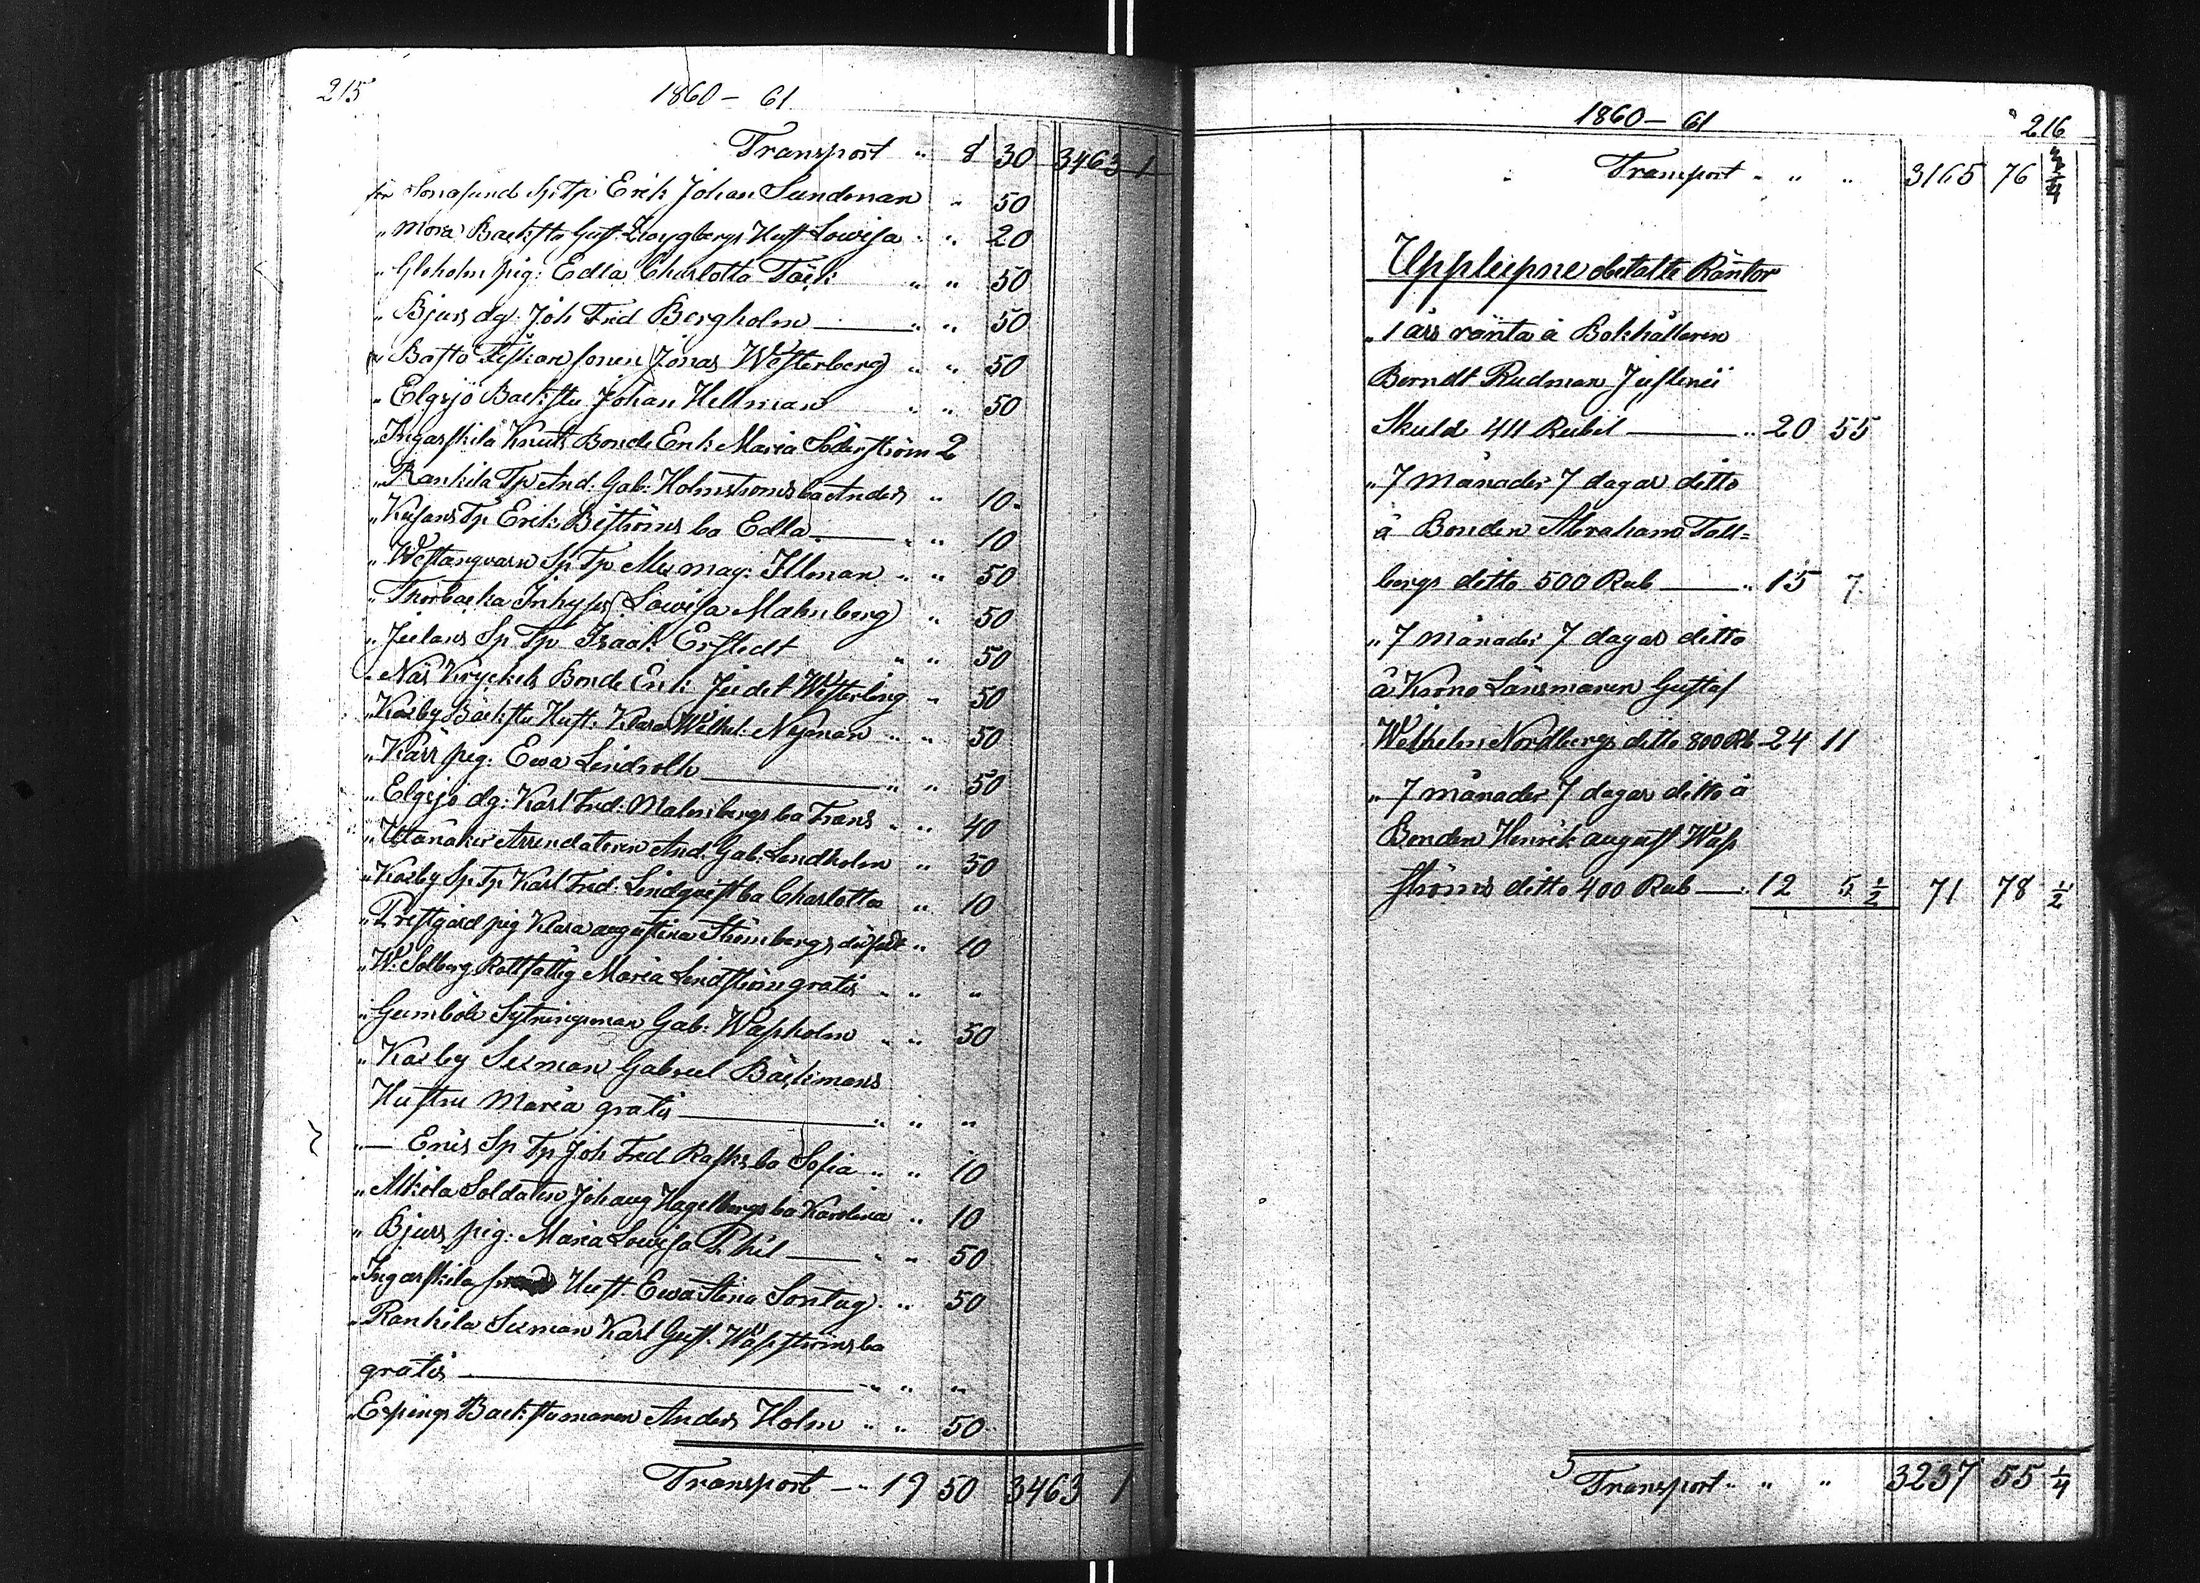 215
1860 – 61
Transport " 8 30 3463 1
för Sp: Tp: Erik Johan Sundman " 50
" Mora Backstu Gust: Ljungbergs Hust: Lowisa " " 20
" pig: Edla Charlotta Täck " " 50
" Bjurs dg: Joh Fred Bergholm — " " 50
" Basto sonen Jonas Westerberg " " 50
" Elgsjö Backstu Johan Hellman " " 50
" Ingarskila Knuts Bonde Enk: Maria Söderström 2
" Rankila Tp And: Gab: Holmstroms ba Anders " 10
" Tp Erik ba Edla — " " 10
" Westanqvarn Sp Tp Illman " " 50
" Thorbacka Inhyses Lowisa Malmberg " 50
" Sp Tp Isaak Erstedt " " 50
" Näs Kryckels Bonde Enk: Judet Westerberg " 50
" Karby Backstu Hust: Klara Wilhel: Nyman " " 50
" Kärr pig: Ewa Lindroth — " " 50
" Elgsjö dg: Karl Fred: Malmbergs ba Frans " " 40
" Utanåker Arrendatoren And: Gab: Lindholm " 50
" Karby Sp: Tp: Karl Fred: Lindqvist ba Charlotta " 10
" Prestgård pig Klara augustina Strömbergs " 10
" W: Solberg Rotfattig Maria Lindström gratis " " "
" Gumböle Sytningsman Gab: Wassholm " " 50
" Karby Suman Gabriel Bäckmans
Hustru Maria gratis — " " "
" — Eriks Sp Tp Joh Fred Rasks ba Sofia " " 10
" Alkila Soldaten Joh aug Hagelbergs ba Karolina " 10
" Bjurs pig: Maria Lowisa Pihl — " " 50
" Ingarskila Hust: Ewa Stina Sontag " 50
" Rankila Suman Karl Gust: Wasströms ba
gratis — " " "
" Espings Backstumannen Anders Holm " " 50
Transport — " 19 50 3463 1
1860 – 61
216
Transport " " " 3165 76 3/4
Upplupne obetalte Räntor
" 1 års ränta å Bokhållaren
Berndt Rudman
Skuld 411 Rubel — " 20 55
" 7 månader 7 dagar ditto
å Bonden Abraham Tall=
bergs ditto 500 Rub — " 15 7
" 7 månader 7 dagar ditto
å Krono Länsmannen Gustaf
Wilhelm Nordbergs ditto 800 Rb — 24 11
" 7 månader 7 dagar ditto å
Bonden Henrik august Was
ströms ditto 400 Rub — " 12 5 1/2 71 78 1/2
Transport " " " 3237 55 1/4